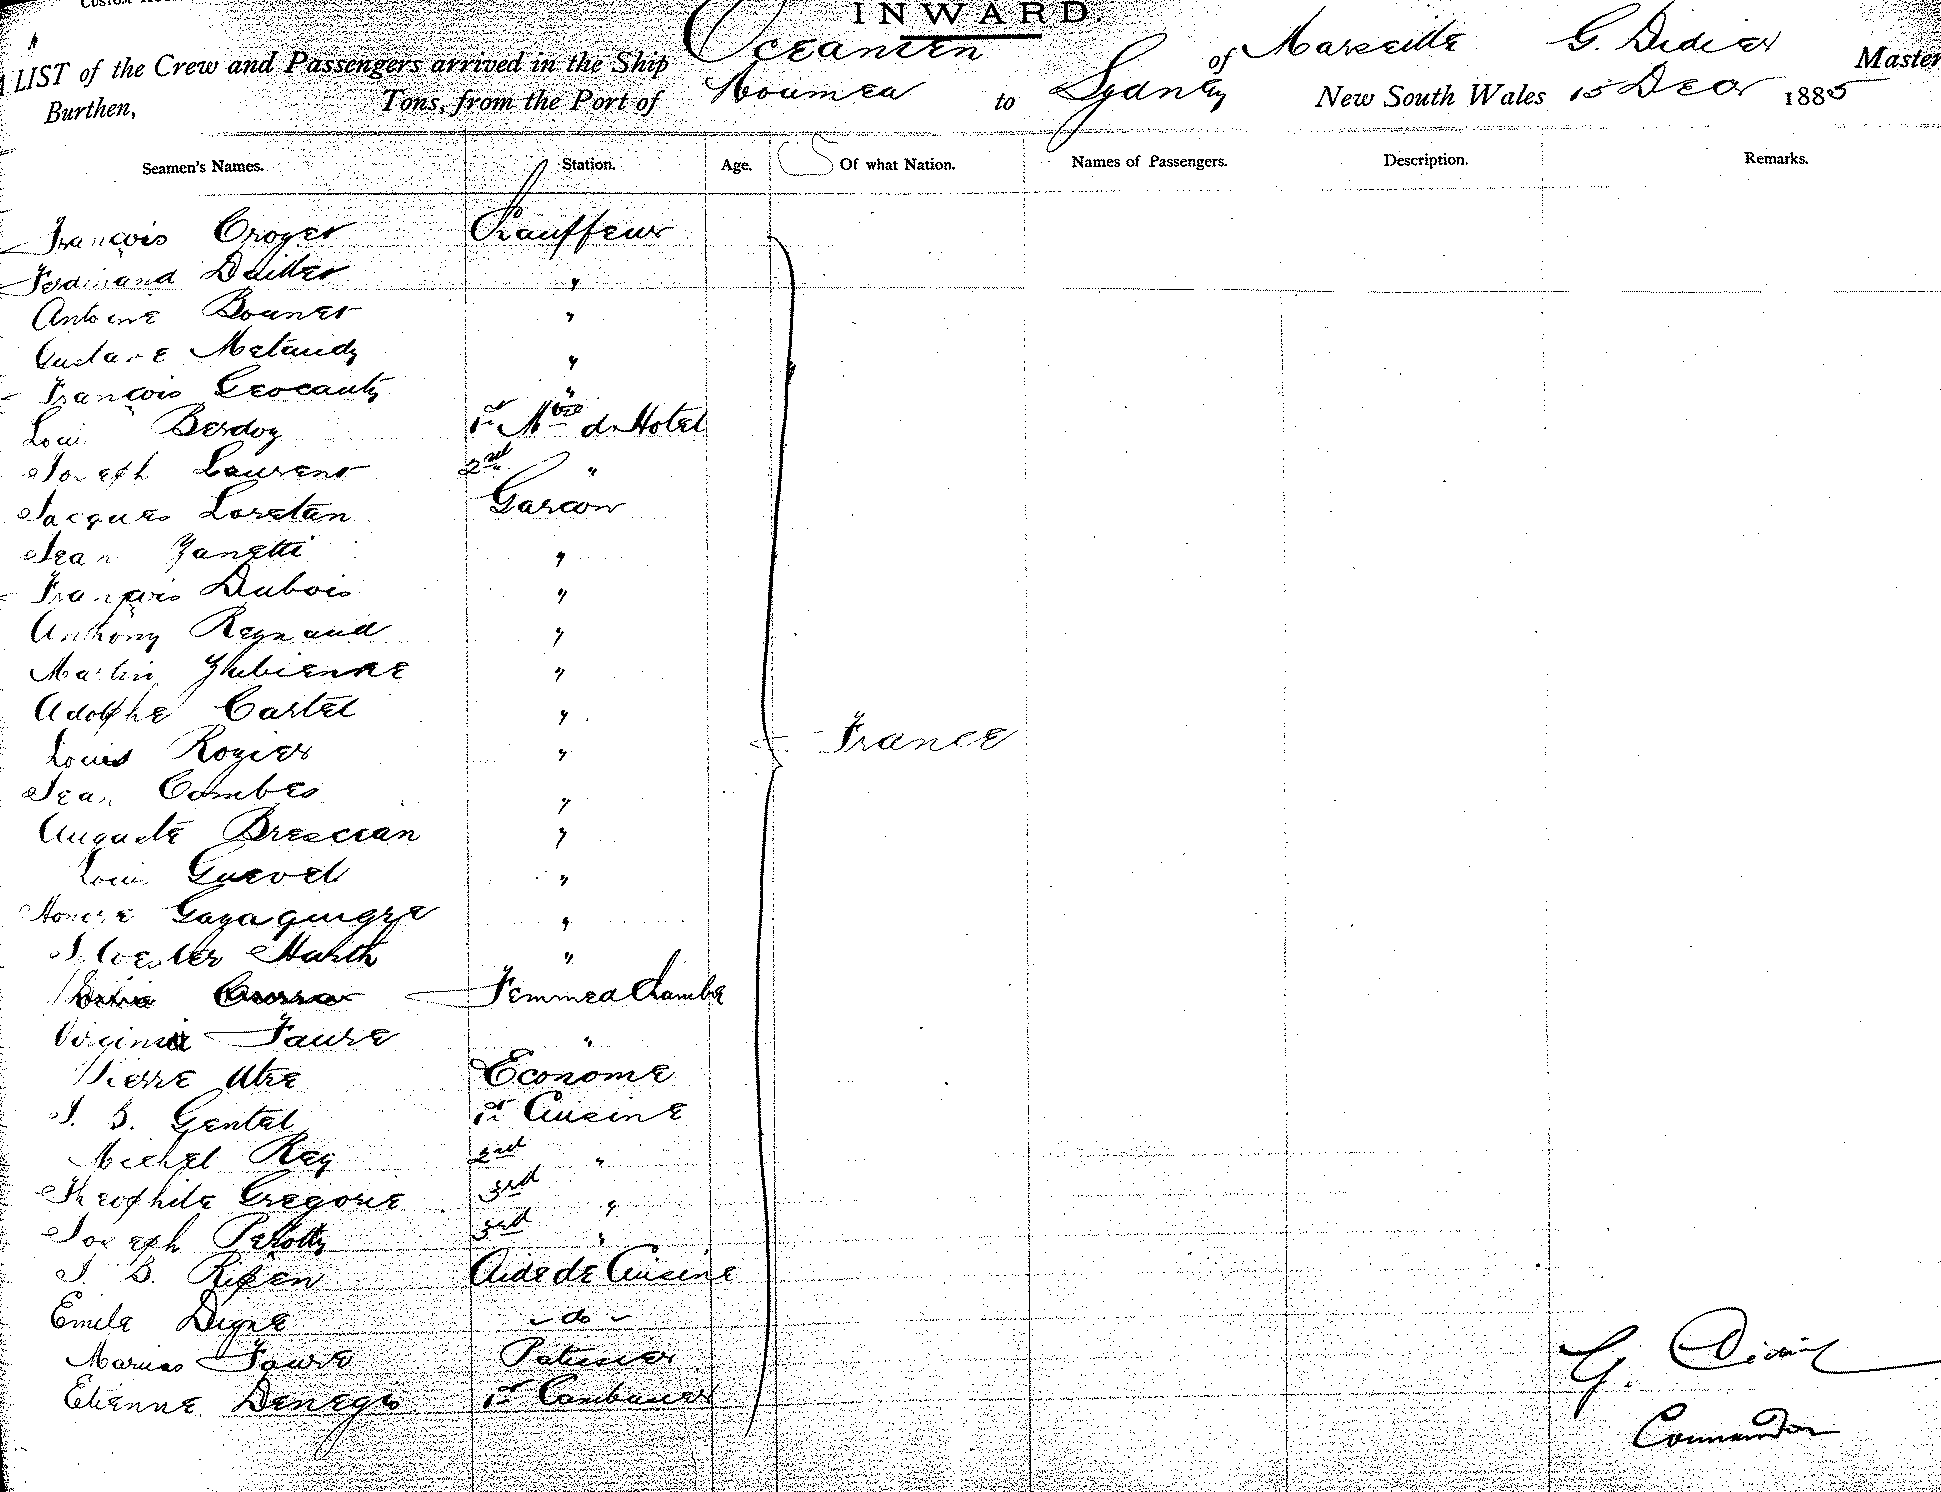 INWARD.
A LIST of the Crew and Passengers arrived in the Ship Oceanien of Marseille G. Didier Master
Burthen, Tons, from the Port of Noumea to Sydney New South Wales 15 Decr 1885
Seamen's Names. Station. Age. Of what Nation. Names of Passengers. Description. Remarks.
François Croyer Chauffeur
Ferdinand "
Antoine Bounet "
Gustave "
François "
Louis Berdoy 1er Mtre d. Hotel
Joseph Laurent 2nd "
Jacques Loretan Garcon
Jean Zanetti "
François Dubois "
Anthony Reynaud "
Martin "
Adolphe Cartel "
Louis Rozier "
France
Jean Combes "
Auguste Brescian "
Louis Guevel "
Honoré "
Silvester "
Femme d Chambre
Virginie Faure "
Pierre Econome
J. B. Gentel 1er Cuisine
Michel Rey 2nd "
Theophile Gregorie 3rd "
Joseph 3rd "
J. B. Aide de Cuisine
Emile Digne - do -
Marius Faure Patissier
Etienne 1er
G. Didier
Commander